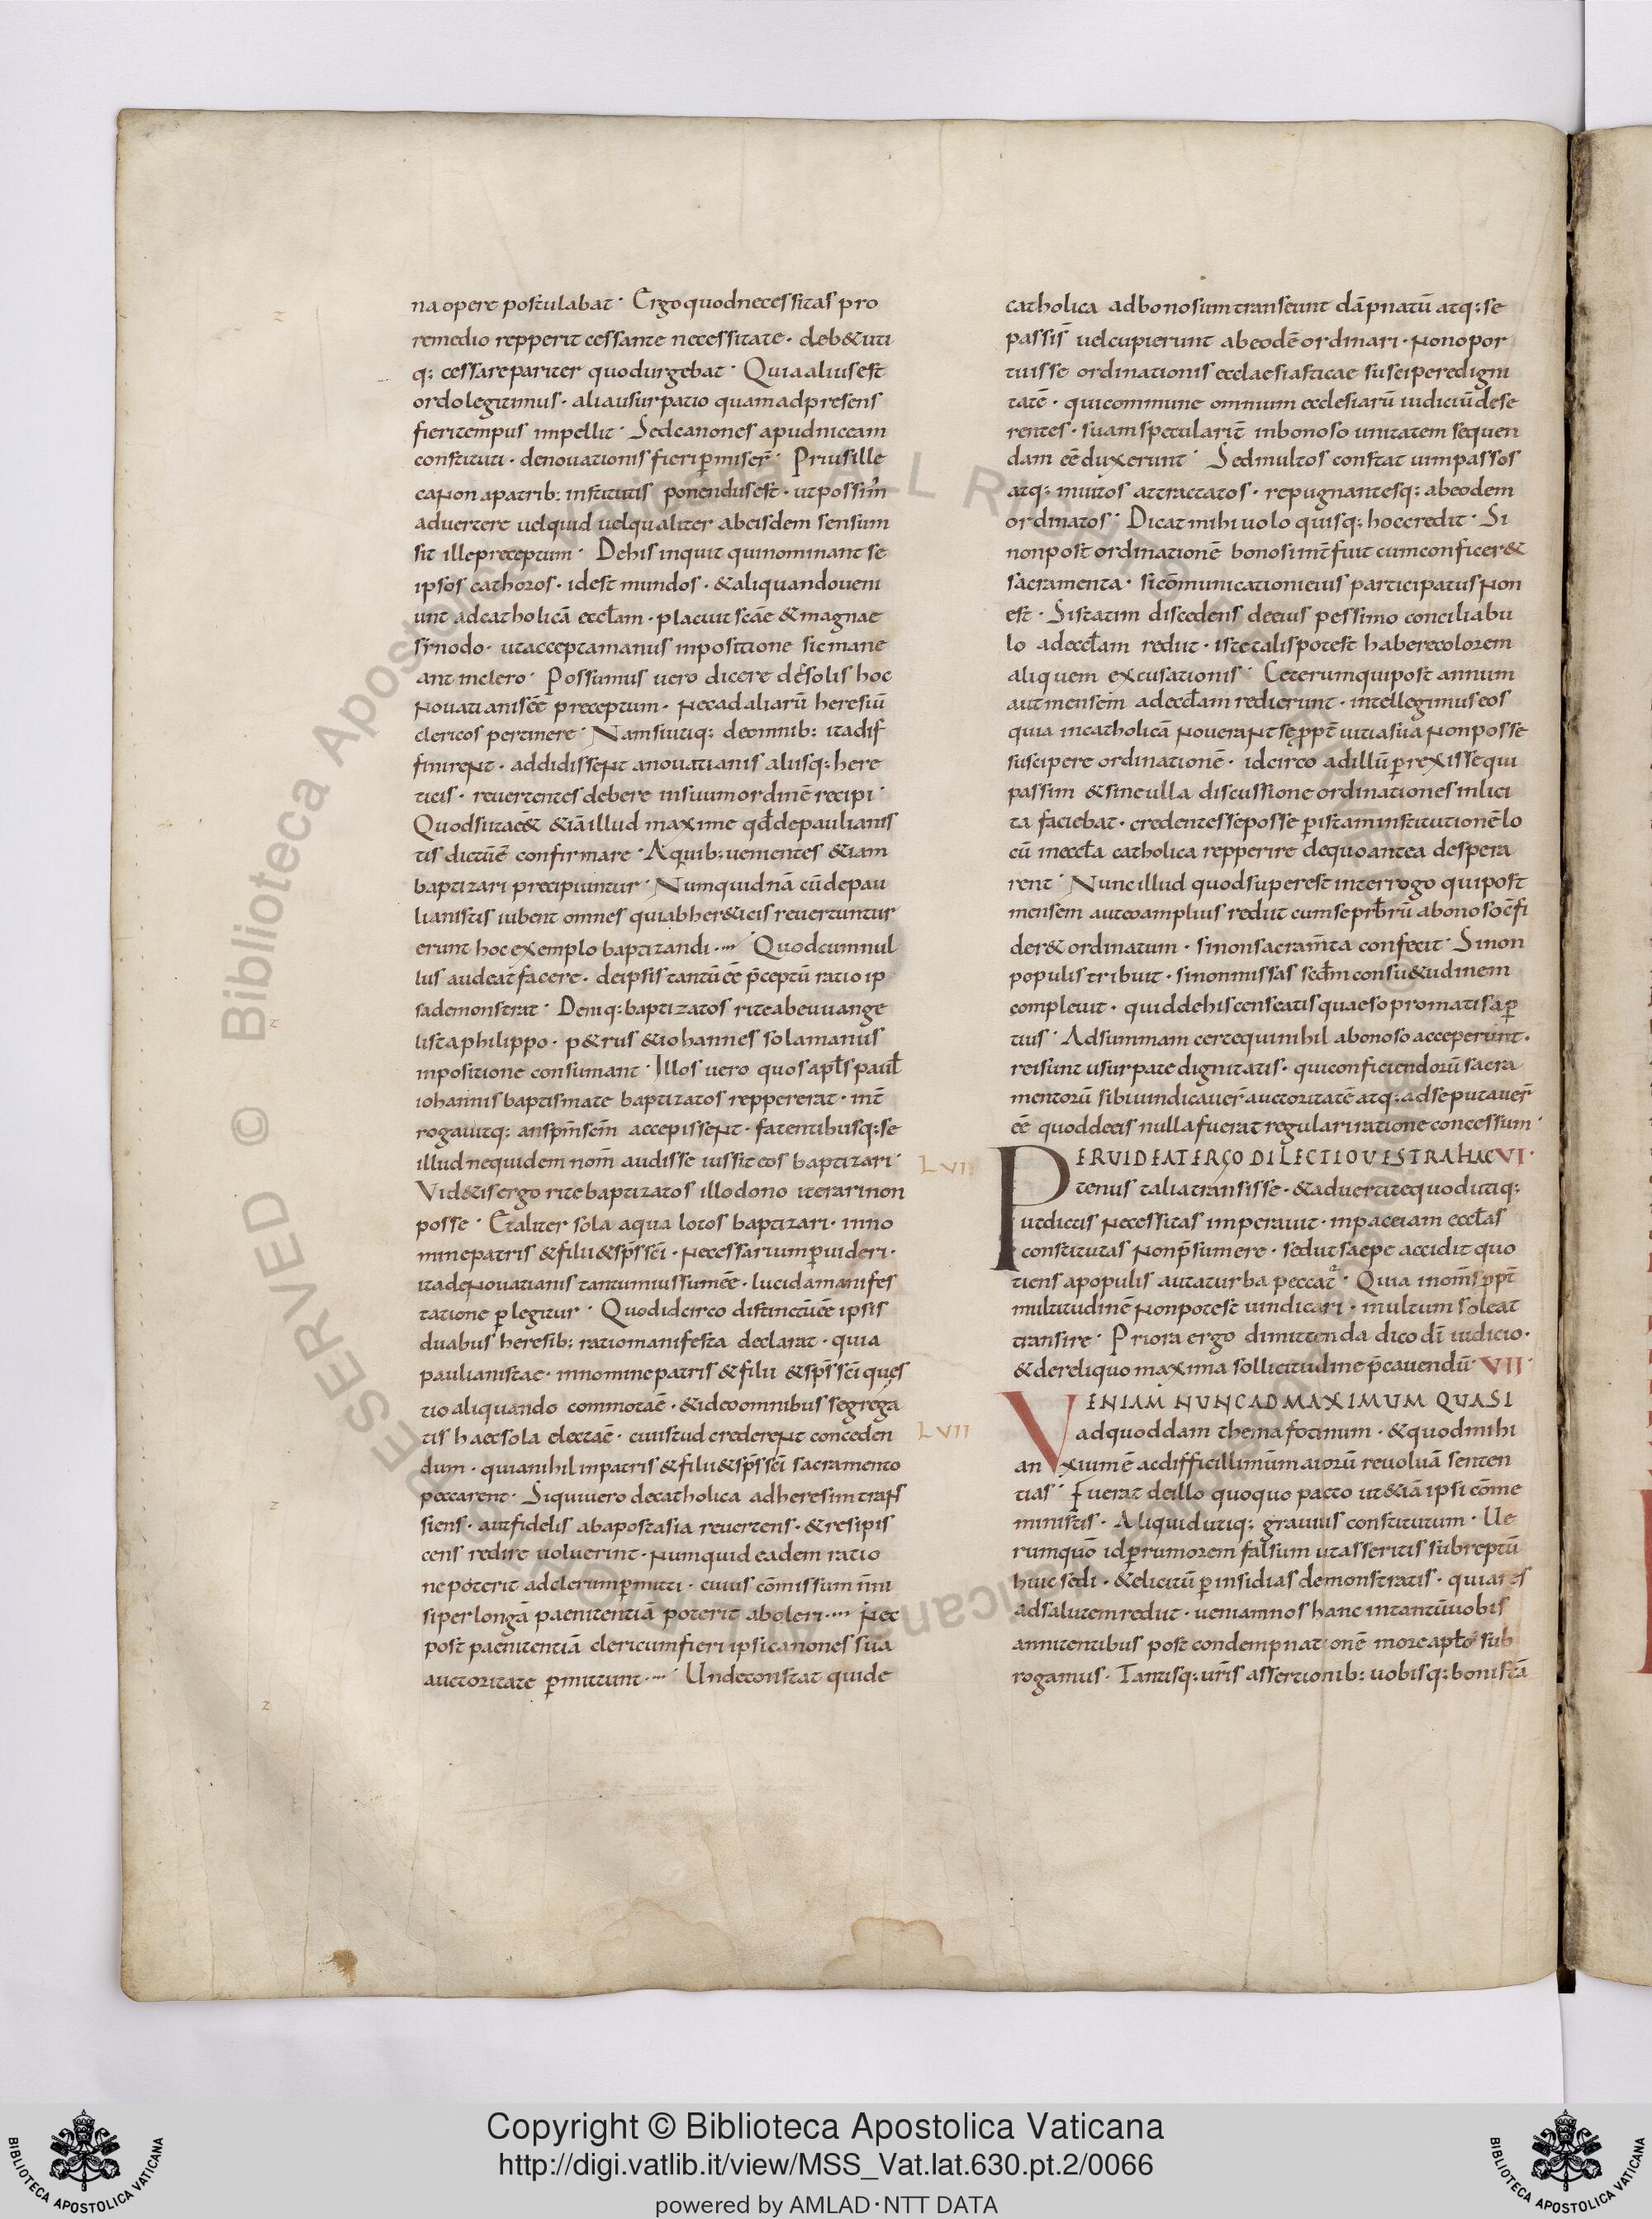 na opere postulabat · Ergo quod necessitas pro
remedio repperit cessante necessitate · deb&uti
q; cessare pariter quod urgebat · Quia alius est
ordo legitimus · alia usurpatio quam ad presens
fieri tempus impellit · Sed canones apud niceam
constituti · de novatianis fieri p̄miser̄ · Prius ille
canon a patrib; institutis ponendus est · ut possim̄
advertere vel quid vel qualiter ab eisdem sensum
sit ille preceptum · De his inquit qui nominant se
ipsos catharos · id est mundos · & aliquando veni
unt ad catholicā eccl̄am · placuit sc̄ae & magnae
synodo · ut accepta manus inpositione sic mane
ant in clero · Possumus vero dicere de solis hoc
novatianis ēē preceptum · nec ad aliarū heresiū
clericos pertinere · Nam si utiq; de omnib; ita dif
finirent · addidissent a novatianis aliisq; here
ticis · revertentes debere in suum ordinē recipi ·
Quod si ita e& &iā illud maxime qđ de paulianis
tis dictū ē confirmare · A quib; venientes &iam
baptizari precipiuntur · Numquid nā cū de pau
lianistis iubent omnes qui ab her&icis revertuntur
erunt hoc exemplo baptizandi · Quod cum nul
lus audeat facere · de ipsis tantū ēē p̄ceptū ratio ip
sa demonstrat · Deniq; baptizatos rite ab euuange
lista philippo · p&rus & iohannes sola manus
inpositione consumant · Illos vero quos apłs pauł
iohannis baptismate baptizatos reppererat · int̄
rogavitq; an sp̄m sc̄m accepissent · fatentibusq; se
illud ne quidem nom̄ audisse iussit eos baptizari ·
Vid&is ergo rite baptizatos illo dono iterari non
posse · Et aliter sola aqua lotos baptizari · in no
mine patris & filii & sp̄s sc̄i · necessarium p̄videri ·
ita de novatianis tantum iussum ēē · lucida manifes
tatione p̄legitur · Quod idcirco distinctū ēē ipsis
duabus heresib; ratio manifesta declarat · quia
paulianistae · in nomine patris & filii & sp̄s sc̄i ques
tio aliquando commota ē · & ideo omnibus segrega
tis haec sola electa ē · cui istud crederent conceden
dum · quia nihil in patris & filii & sp̄s sc̄i sacramento
peccarent · Si qui vero de catholica ad heresim tran
siens · aut fidelis ab apostasia revertens · & resipis
cens redire voluerint · numquid eadem ratio
ne poterit ad clerum p̄mitti · cuius cōmissum n̄ni
si per longā paenitentiā poterit aboleri · Nec
post paenitentiā clericum fieri ipsi canones sua
auctoritate p̄mittunt · Unde constat quide
catholica ad bonosum transeunt dāpnatū atq; se
passis̄ vel cupierunt ab eodē ordinari · non opor
tuisse ordinationis ecclaesiasticae suscipere digni
tatē · qui commune omnium ecclesiarū iudiciū dese
rentes · suam specularit̄ in bonoso unitatem sequen
dam ēē duxerunt · Sed multos constat vim passos
atq; invitos attractatos · repugnantesq; ab eodem
ordinatos · Dicat mihi volo quisq; hoc credit · Si
non post ordinationē bonosi int̄fuit cum conficer&
sacramenta · si cōmunicationi eius participatus non
est · Si statim discedens de eius pessimo conciliabu
lo ad eccłam rediit · iste talis potest habere colorem
aliquem excusationis · Ceterum qui post annum
aut mensem ad eccłam redierunt · intellegimus eos
quia in catholicā noverant se ppt̄ vitia sua non posse
suscipere ordinationē · idcirco ad illū p̄rexisse qui
passim & sine ulla discussione ordinationes inlici
ta faciebat · credentes se posse p̄ istam institutionē lo
cū in eccła catholica repperire de quo antea despera
rent · Nunc illud quod superest interrogo qui post
mensem aut eo amplius rediit cum se prb̄rū a bonoso cfi
der& ordinatum · si non sacram̄ta confecit · Si non
populis tribuit · si non missas sec̄đm consu&udinem
complevit · quid de his censeatis quaeso promatis ap̄
tius · Ad summam certe qui nihil a bonoso acceperunt ·
rei sunt usurpate dignitatis · qui conficiendorū sacra
mentorū sibi vindicaver̄ auctoritatē atq; ad se putaver̄
ēē quod de eis nulla fuerat regulari ratione concessum ·
LVI PERVIDEAT ERGO DILECTIO VESTRA HAC VI ·
tenus talia transisse · & advertite quod utiq;
ut dictis necessitas imperavit · in pace iam eccłas
constitutas non p̄sumere · sed ut saepe accidit quo
tiens a populis aut a turba peccat · Quia in om̄s ppt̄
multitudinē non potest vindicari · inultum soleat
transire · Priora ergo dimittenda dico dī iudicio ·
& de reliquo maxima sollicitudine p̄cavendū · VII ·
LVII VENIAM NUNC AD MAXIMUM QUASI
ad quoddam thema fotinum · & quod mihi
anxium ē ac difficillimū maiorū revolvā senten
tias · Fuerat de illo quoquo pacto ut &iā ipsi cōme
ministis · Aliquid utiq; gravius constitutum · Ve
rum quo id p̄ rumorem falsum ut asseritis subreptū
huic sedi · & elicitū p̄ insidias demonstratis · quia res
ad salutem rediit · veniam nos hanc in tantū vobis
annitentibus post condempnationē more apło sub
rogamus · Tantisq; vr̄is assertionib; vobisq; bonis tā
Copyright © Biblioteca Apostolica Vaticana
http://digi.vatlib.it/view/MSS_Vat.lat.630.pt.2/0066
powered by AMLAD·NTT DATA
BIBLIOTECA APOSTOLICA VATICANA
BIBLIOTECA APOSTOLICA VATICANA